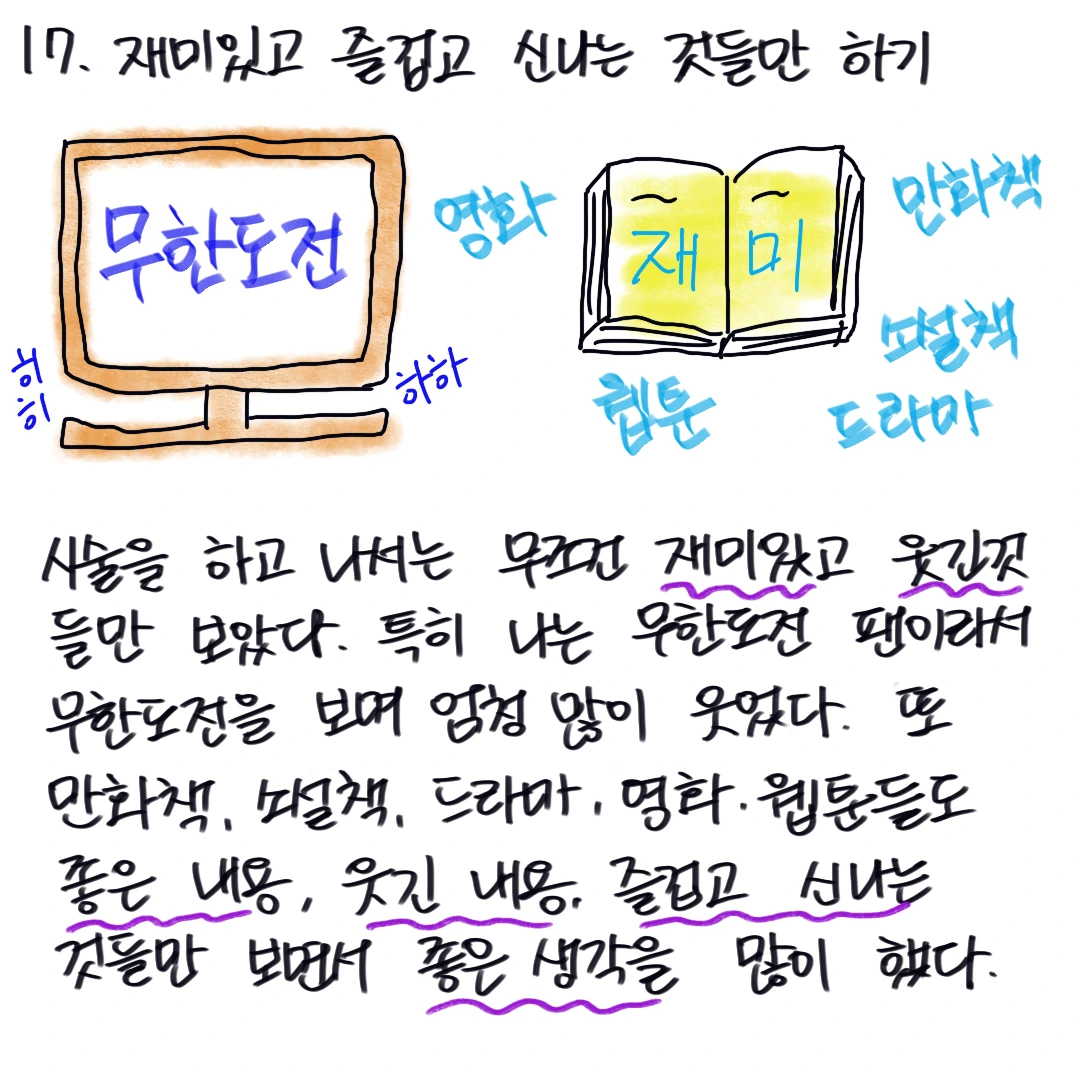 17. 재미있고 즐겁고 신나는 것들만 하기
무한도전
영화
재미
만화책
소설책
웹툰
드라마
히히
하하
시술을 하고 나서는 무조건 재미있고 웃긴것
들만 보았다. 특히 나는 무한도전 팬이라서
무한도전을 보며 엄청 많이 웃었다. 또
만화책, 소설책, 드라마, 영화, 웹툰들도
좋은 내용, 웃긴 내용, 즐겁고 신나는
것들만 보면서 좋은 생각을 많이 했다.